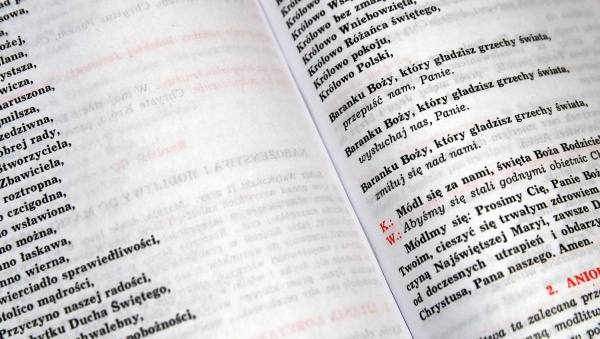 ożej,
lana,
ystsza,
wicza,
aruszona,
milsza,
edziwna,
obrej rady,
Stworzyciela,
Zbawiciela,
roztropna,
o czcigodna,
no wsławiona,
no można,
nno łaskawa,
nno wierna,
wierciadło sprawiedliwości,
tolico mądrości,
Przyczyno naszej radości,
bytku Ducha Świętego,
chwalebny,
pobożności,
Królowo
Królowo bez zmazy
Królowo Wniebowzięta,
Królowo Różańca świętego,
Królowo pokoju,
Królowo Polski,
Baranku Boży, który gładzisz grzechy świata,
przepuść nam, Panie.
Baranku Boży, który gładzisz grzechy świata,
wysłuchaj nas, Panie.
Baranku Boży, który gładzisz grzechy świata,
zmiłuj się nad nami.
K.: Módl się za nami, święta Boża Rodziciel
W.: Abyśmy się stali godnymi obietnic Ch
Módlmy się: Prosimy Cię, Panie Boż
Twoim, cieszyć się trwałym zdrowiem
czyną Najświętszej Maryi, zawsze D
od doczesnych utrapień i obdarzy
Chrystusa, Pana naszego. Amen.
2. ANIO
ta zalecana prze
modlitw